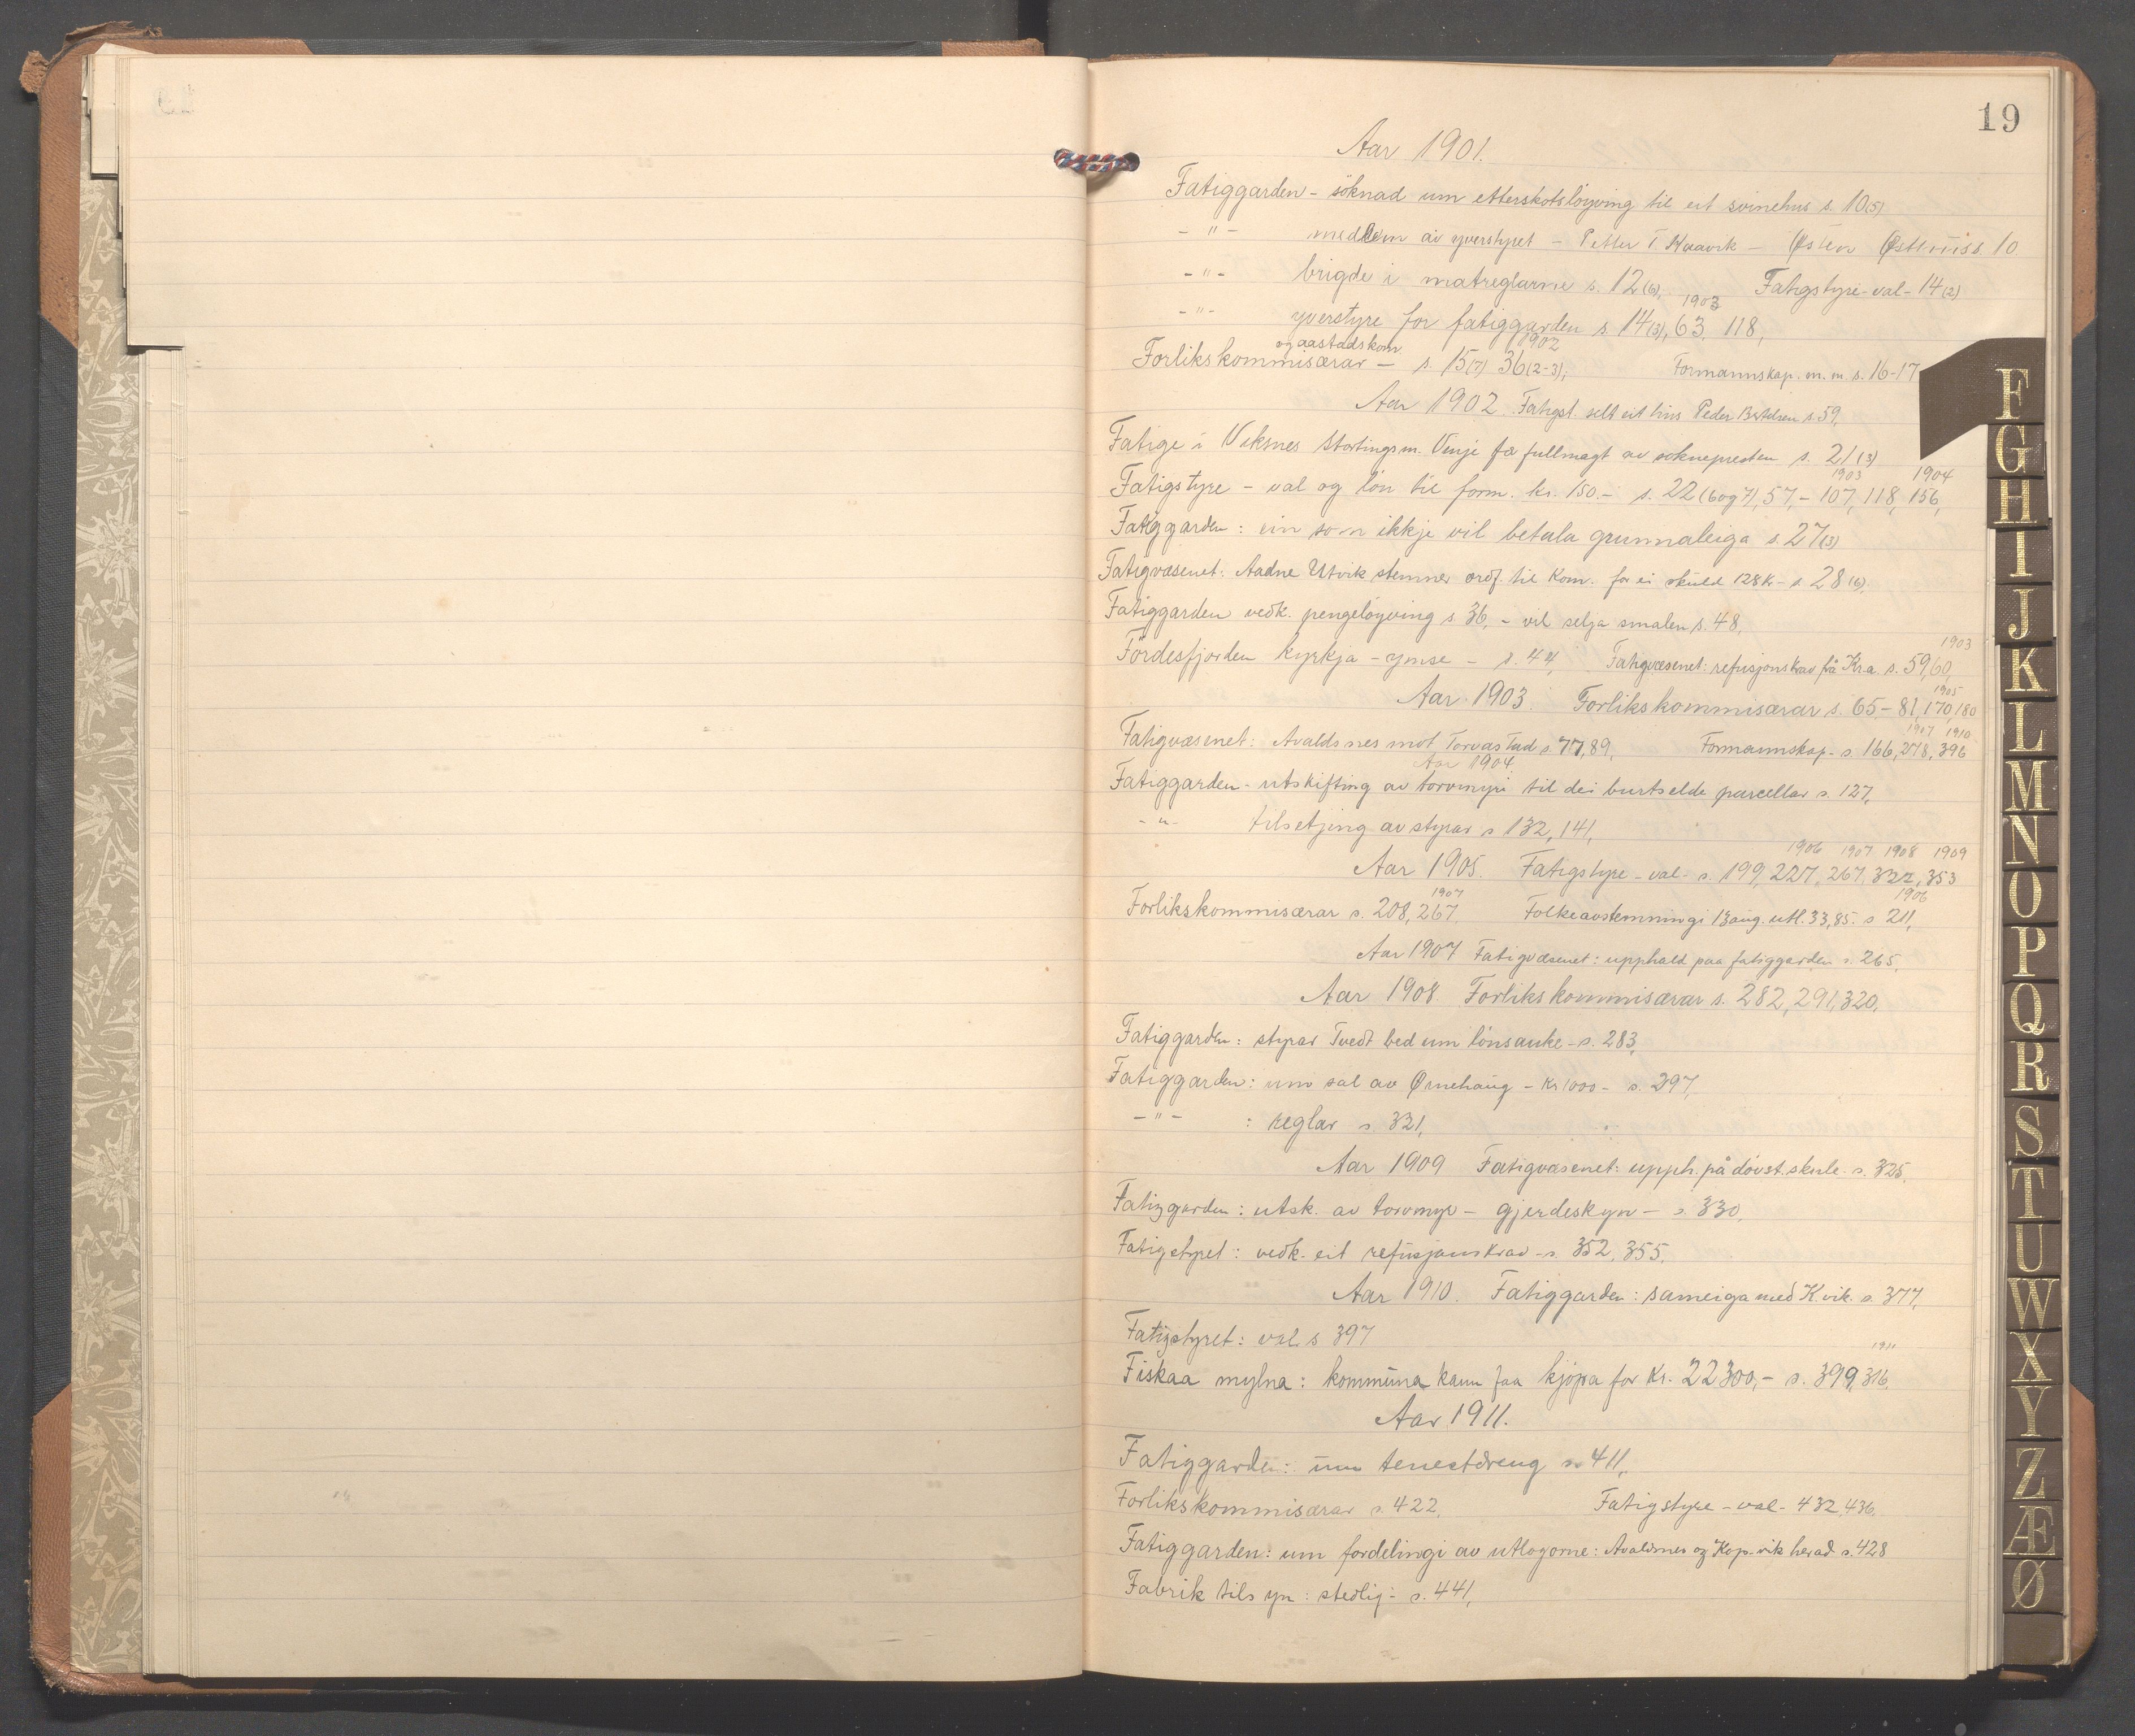 19
Aar 1901.
Fatiggarden - söknad um etterskotsløyving til eit svinehus s. 10(5)
- " - medlem av yverstyret - Petter T Kvavik - Østen s. 10.
- " - brigde i matreglarne s. 12(6), Fatigstyre - val - 14(2)
1903
- " - yverstyre for fatiggarden s 14(3), 63, 118,
og aastadskom 1902
Forlikskommisærar - s. 15(7) 36(2-3), Formannskap. m. m. s. 16-17
Aar 1902. Fatigst. selt eit hus Peder Bertelsen s. 59,
Fatige i Viksnes Stortingsm. Vinje fær fullmagt av soknepresten s. 21(3)
1903 1904
Fatigstyre - val og løn til form. kr. 150.- s. 22(6 og 7), 57, - 107, 118, 156,
Fatiggarden: ein som ikkje vil betala grunnaleiga s. 27(3)
Fatigvæsenet: Aadne Utvik stemner ordf. til Kom. for ei skuld 128 Kr - s 28(6).
Fatiggarden vedk. pengeløyving s 36, - vil selja smalen s. 48,
1903
Fördesfjorden kyrkja - ymse - s. 44, Fatigvæsenet: refusjonskrav frå Kr.a. s. 59, 60,
1905
Aar 1903. Forlikskommisærar s. 65 - 81, 170, 180
1907 1910
Fatigvæsenet: Avaldsnes mot Torvastad s. 77, 89, Formannskap - s. 166, 278, 396
Aar 1904.
Fatiggarden - utskifting av torvmyri til dei burtselde parcellar s. 127,
- " - tilsetjing av styrar s 132, 141,
1906 1907 1908 1909
Aar 1905. Fatigstyre - val - s. 199, 227, 267, 322, 353
1907 1906
Forlikskommisærar s. 208, 267. Folkeavstemningi 13 aug. utl. 33,85. s 211,
Aar 1907 Fatigvæsenet: upphald paa fatiggarden s. 265,
Aar 1908. Forlikskommisærar s. 282, 291, 320,
Fatiggarden: styrar Tvedt bed um lönsauke - s. 283,
Fatiggarden: um sal av Ørnehaug - Kr 1000 - s. 297,
- " - : reglar s. 321,
Aar 1909 Fatigvæsenet: upph. på døvst. skule - s. 325,
Fatiggarden: utsk. av torvmyr - gjerdeskyn - s. 330,
Fatigstyret: vedk. eit refusjonskrav - s. 352, 355,
Aar 1910. Fatiggarden: sameiga med K.vik. s. 377,
Fatigstyret: val s 397
1911
Fiskaa mylna: kommuna kann faa kjöpa for Kr. 22300,- s. 399, 316,
Aar 1911.
Fatiggarden: um tenestdreng s. 411,
Forlikskommisærar s. 422, Fatigstyre - val - 432, 436,
Fatiggarden: um fordelingi av utlogorne: Avaldsnes og Kop.vik herad. s. 428
Fabrik tilsyn: stedlig - s. 441,
F
G
H
I
J
K
L
M
N
O
P
Q
R
S
T
U
W
X
Y
Z
Æ
Ø